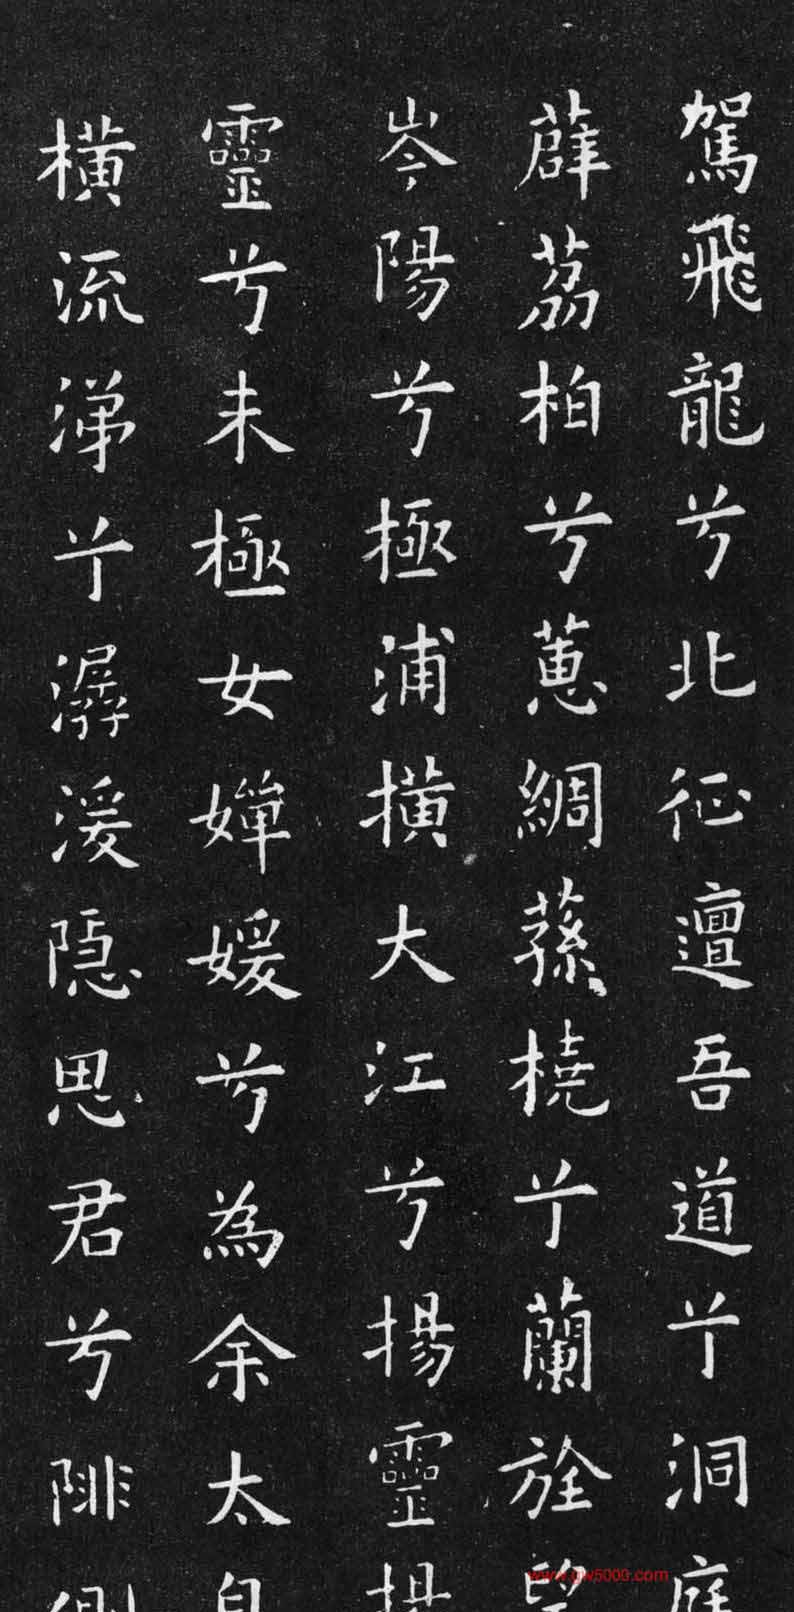 駕飛龍兮北征邅吾道兮洞庭
薜荔柏兮蕙綢蓀橈兮蘭旌望
岑陽兮極浦橫大江兮揚靈揚
靈兮未極女嬋媛兮為余太息
橫流涕兮潺湲隱思君兮陫側
www.gw5000.com